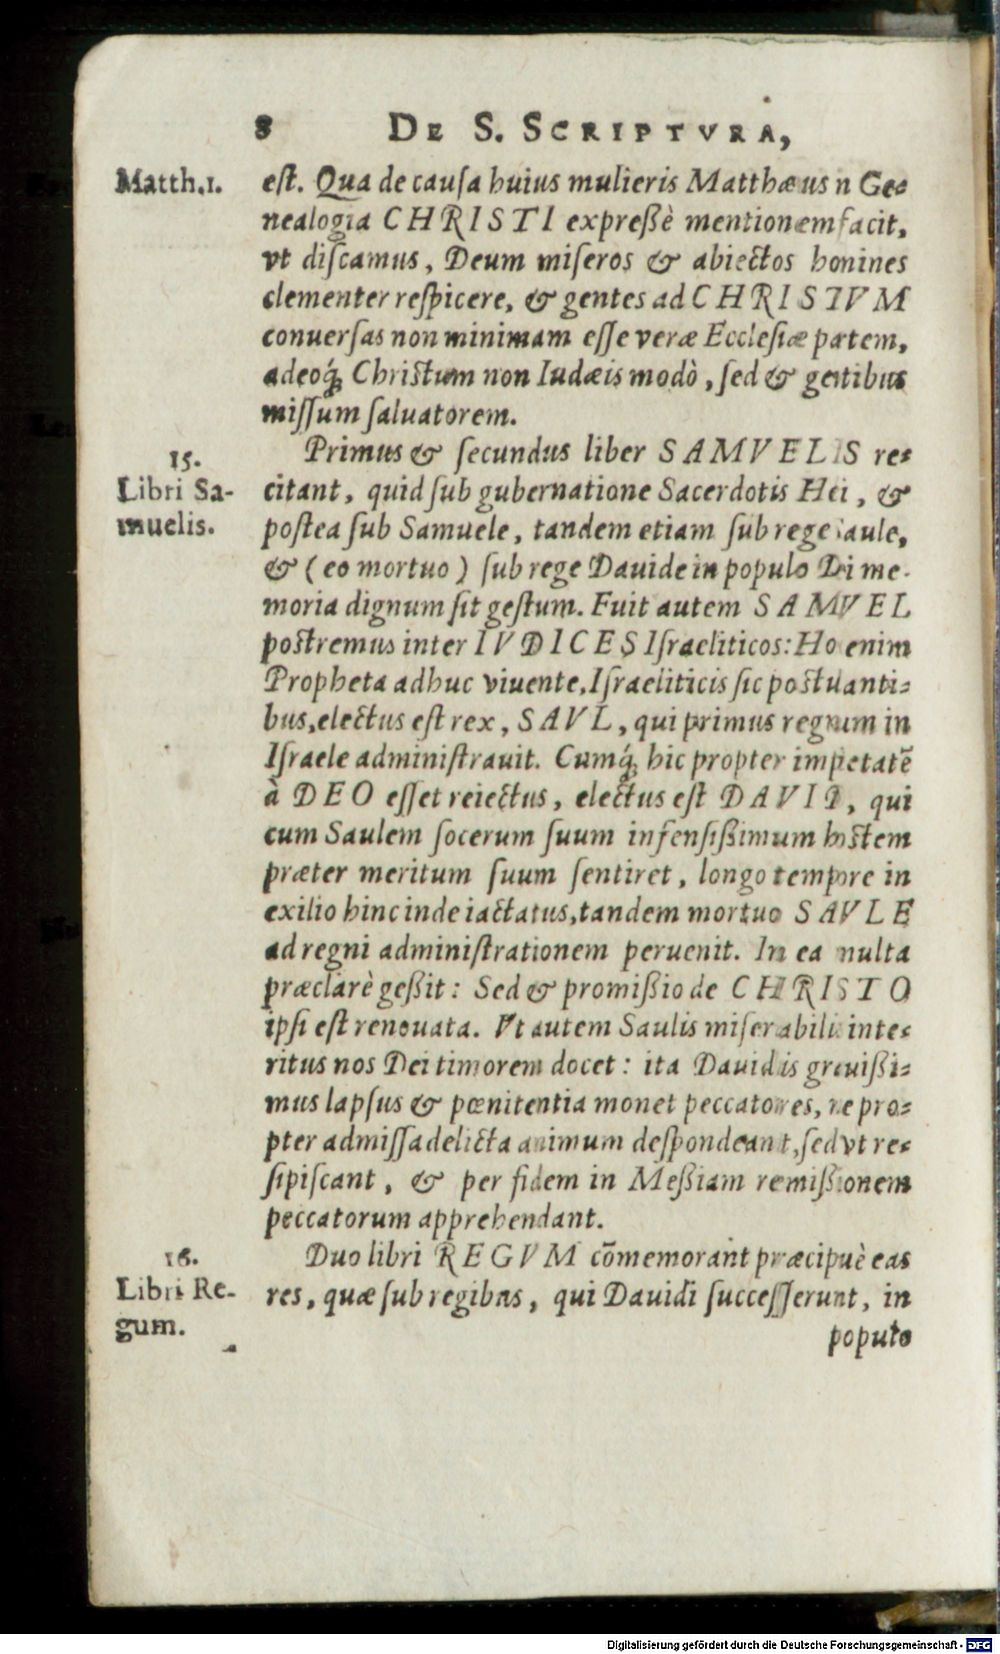 8 DE S. SCRIPTVRA,
Matth.1.
est. Qua de causa huius mulieris Matthæus n Ge=
nealogia CHRISTI expreßè mentionem facit,
vt discamus, Deum miseros & abiectos honines
clementer respicere, & gentes ad CHRISTVM
conuersas non minimam esse veræ Ecclesiæ patem,
adeoq́; Christum non Iudæis modò, sed & gentibus
missum saluatorem.
15.
Libri Sa-
muelis.
Primus & secundus liber SAMVELIS re=
citant, quid sub gubernatione Sacerdotis Heli, &
postea sub Samuele, tandem etiam sub rege Saule,
& (eo mortuo) sub rege Dauide in populo Dei me-
moria dignum sit gestum. Fuit autem SAMVEL
postremus inter IVDICES Israeliticos: Hoc enim
Propheta adhuc viuente, Israeliticis sic postulanti=
bus, electus est rex, SAVL, qui primus regnum in
Israele administrauit. Cumq́; hic propter impietatē
à DEO esset reiectus, electus est DAVID, qui
cum Saulem socerum suum infensißimum hostem
præter meritum suum sentiret, longo tempore in
exilio hinc inde iactatus, tandem mortuo SAVLE
ad regni administrationem peruenit. In ea multa
præclarè geßit: Sed & promißio de CHRISTO
ipsi est renouata. Vt autem Saulis miserabilis inte=
ritus nos Dei timorem docet: ita Dauidis grauißi=
mus lapsus & pœnitentia monet peccatores, ne pro=
pter admissa delicta animum despondeant, sed vt re=
sipiscant, & per fidem in Meßiam remißionem
peccatorum apprehendant.
16.
Libri Re-
gum.
Duo libri REGVM cōmemorant præcipuè eas
res, quæ sub regibus, qui Dauidi successerunt, in
populo
Digitalisierung gefördert durch die Deutsche Forschungsgemeinschaft - DFG